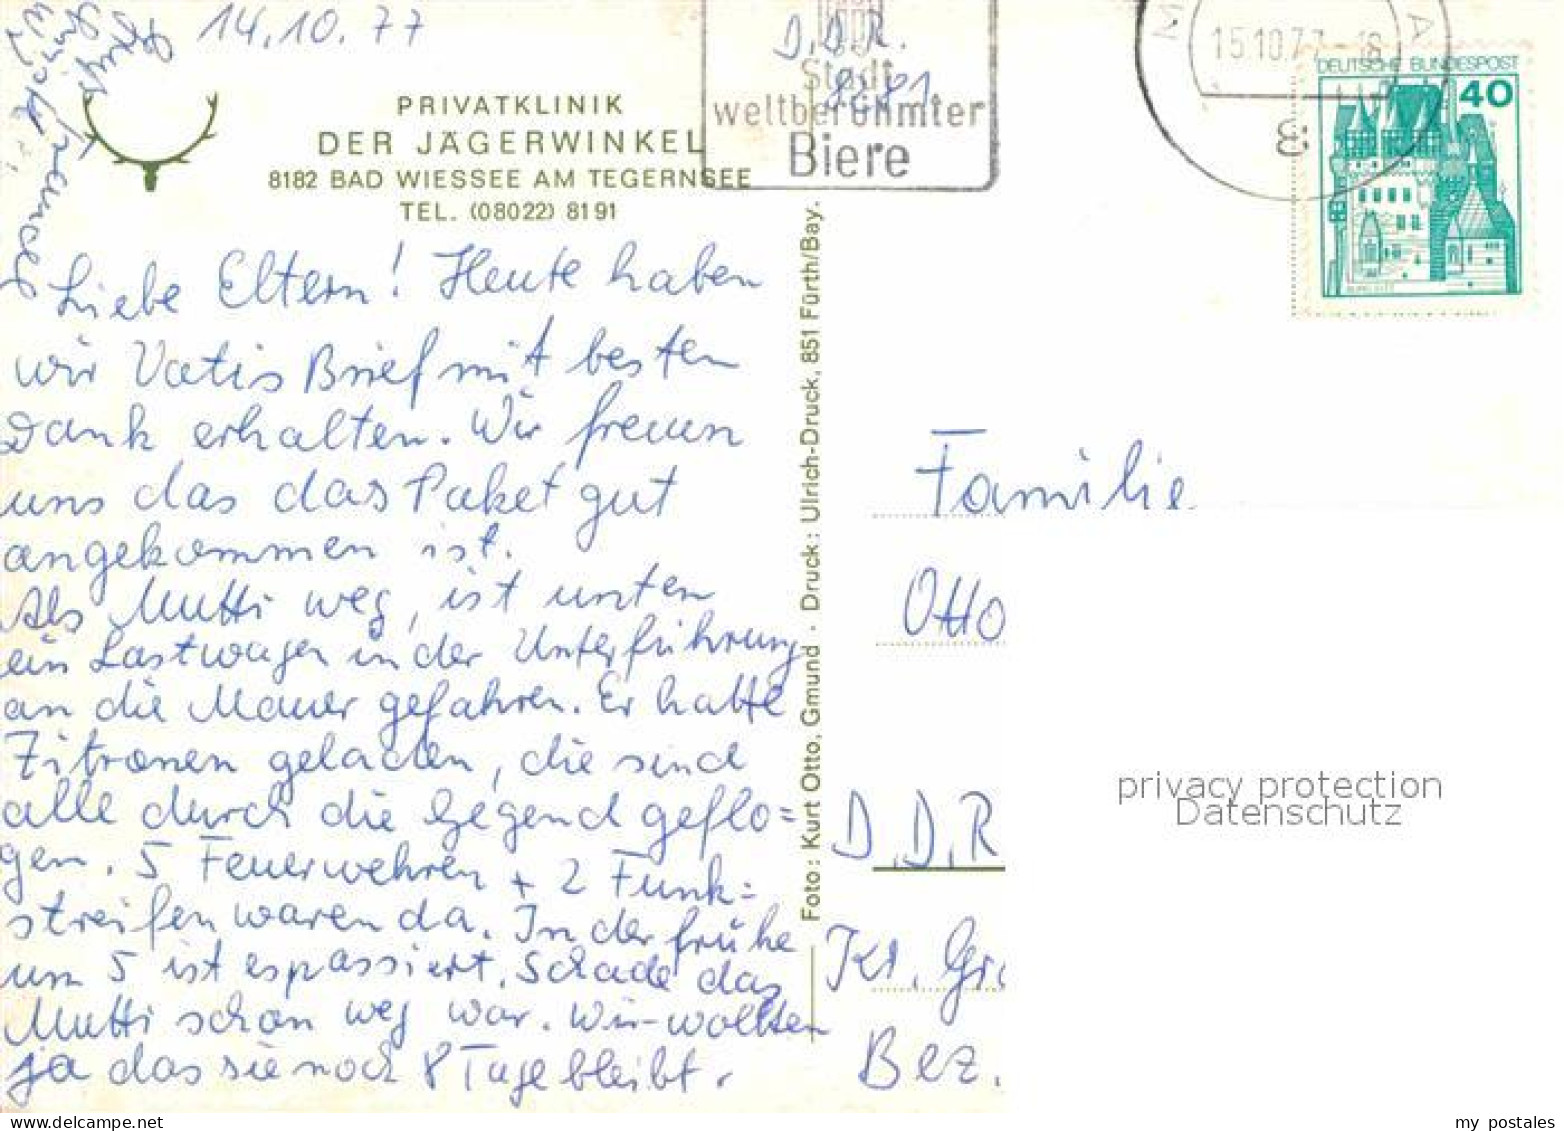 14.10.77
PRIVATKLINIK
DER JÄGERWINKEL
8182 BAD WIESSEE AM TEGERNSEE
TEL. (08022) 8191
Liebe Eltern! Heute haben
wir Vatis Brief mit besten
Dank erhalten. Wir freuen
uns das das Paket gut
angekommen ist.
Als Mutti weg, ist unten
ein Lastwagen in der Unterführung
an die Mauer gefahren. Er hatte
Zitronen geladen, die sind
alle durch die Gegend geflo=
gen. 5 Feuerwehren + 2 Funk=
streifen waren da. In der frühe
um 5 ist es passiert. Schade das
Mutti schon weg war. Wir wollten
ja das sie noch 8 Tage bleibt.
Foto: Kurt Otto, Gmund · Druck: Ulrich-Druck, 851 Fürth/Bay.
D.D.R.
Stadt
weltberühmter
Biere
15.10.77-18
8
DEUTSCHE BUNDESPOST
40
BURG ELTZ
Familie
Otto
D.D.R
Kr. Gr
Bez.
privacy protection
Datenschutz
my postales